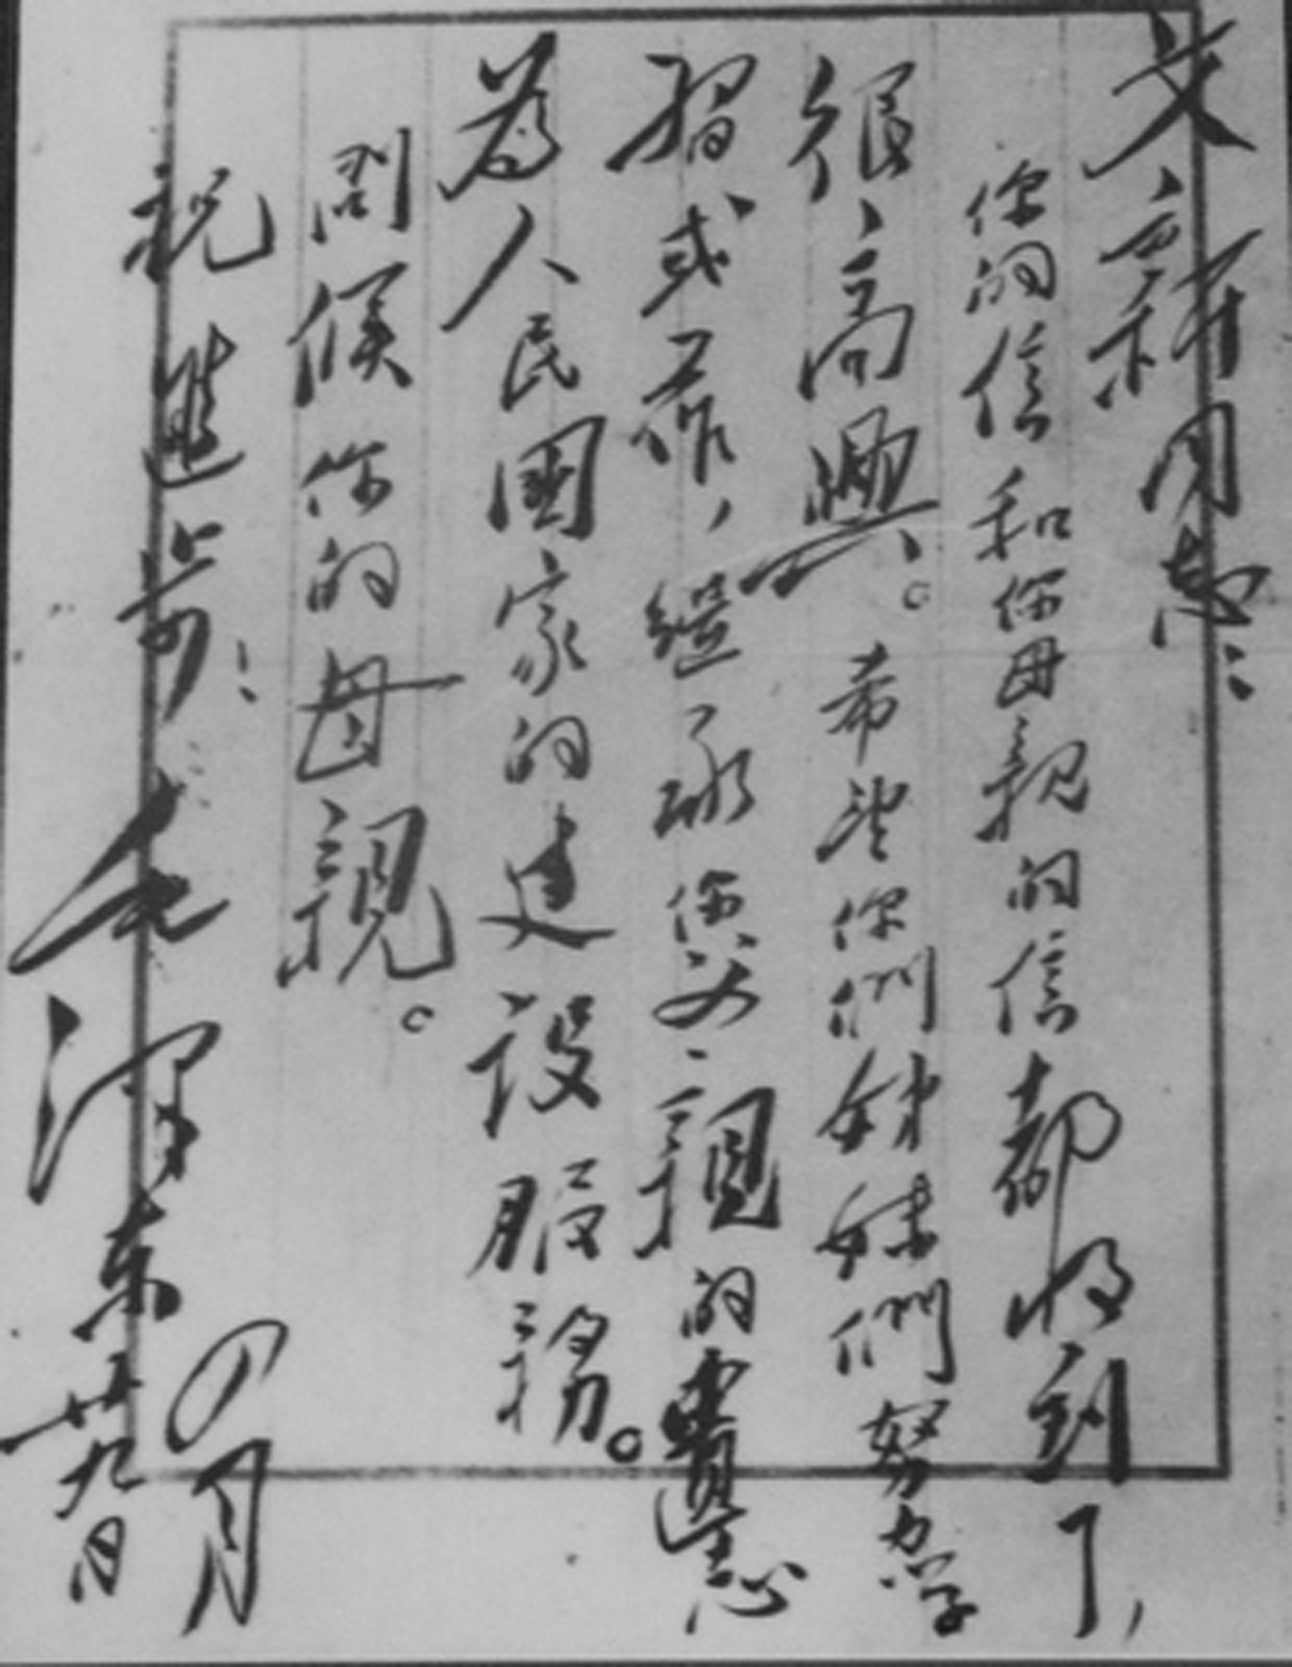 文新同志:
你的信和你母親的信都收到了,
很高興。希望你們姊妹們努力学
習或工作,繼承你父親的遺志
為人民國家的建設服務。
問候你的母親。
祝進步!
毛澤东
四月
廿九日